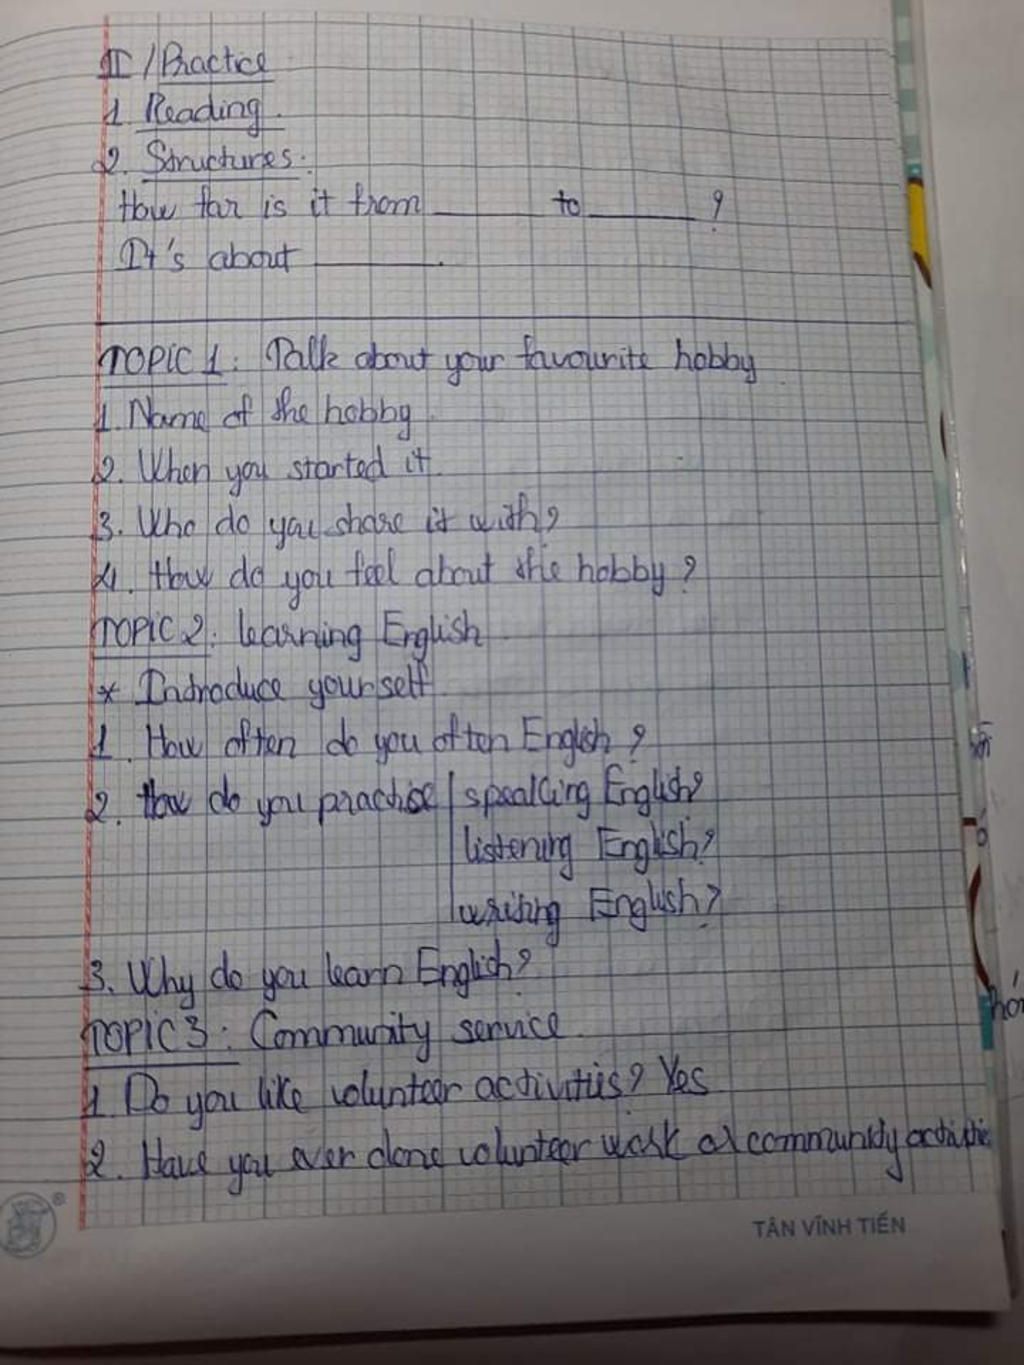 II / Practice
1. Reading.
2. Structures:
How far is it from ______ to ______ ?
It's about ______.
TOPIC 1: Talk about your favourite hobby
1. Name of the hobby.
2. When you started it
3. Who do you share it with?
4. How do you feel about the hobby ?
TOPIC 2: learning English
* Introduce yourself
1. How often do you often English ?
2. How do you practise speaking English?
listening English?
writing English?
3. Why do you learn English?
TOPIC 3: Community service
1. Do you like volunteer activities? Yes
2. Have you ever done volunteer work or community activities
TÂN VĨNH TIẾN
®